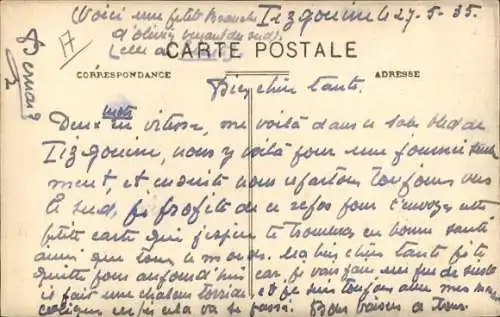 Voici une petite branche Tizgouine le 27-5-35
d'olivier venant du sud
CARTE POSTALE
CORRESPONDANCE ADRESSE
Bien chère tante.
mots
Deux en vitesse, me voilà dans ce sale bled de
Tizgouine, nous y voilà pour une journée seule
ment, et ensuite nous repartons toujours vers
le sud, je profite de ce repos pour t'envoyer cette
petite carte qui j'espère te trouvera en bonne santé
ainsi que tous le monde. Ma bien chère tante je te
quitte pour aujourd'hui car je vais faire une peu de sieste
il fait une chaleur torride, et je suis toujours avec mes
coliques cela va se passer. Bons baisers à tous.